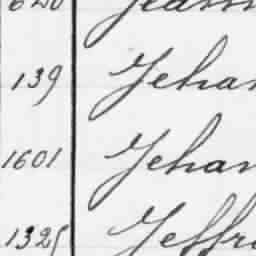 139 Jehan
1601 Jehan
1325 Jeffr